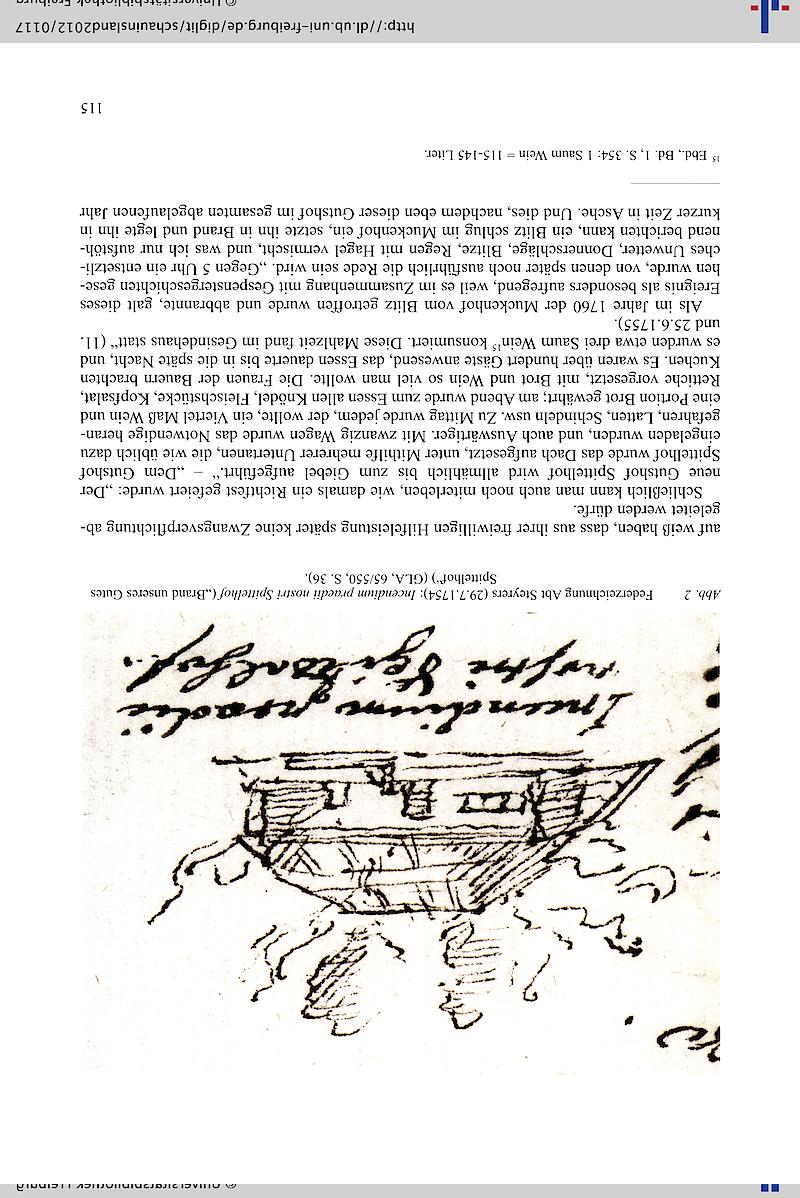 Incendium praedii
nostri Spitalhof.
Abb. 2 Federzeichnung Abt Steyrers (29.7.1754): Incendium praedii nostri Spittelhof („Brand unseres Gutes
Spittelhof“) (GLA, 65/550, S. 36).
auf weiß haben, dass aus ihrer freiwilligen Hilfeleistung später keine Zwangsverpflichtung ab-
geleitet werden dürfe.
Schließlich kann man auch noch miterleben, wie damals ein Richtfest gefeiert wurde: „Der
neue Gutshof Spittelhof wird allmählich bis zum Giebel aufgeführt.“ – „Dem Gutshof
Spittelhof wurde das Dach aufgesetzt, unter Mithilfe mehrerer Untertanen, die wie üblich dazu
eingeladen wurden, und auch Auswärtiger. Mit zwanzig Wagen wurde das Notwendige heran-
gefahren, Latten, Schindeln usw. Zu Mittag wurde jedem, der wollte, ein Viertel Maß Wein und
eine Portion Brot gewährt; am Abend wurde zum Essen allen Knödel, Fleischstücke, Kopfsalat,
Rettiche vorgesetzt, mit Brot und Wein so viel man wollte. Die Frauen der Bauern brachten
Kuchen. Es waren über hundert Gäste anwesend, das Essen dauerte bis in die späte Nacht, und
es wurden etwa drei Saum Wein¹⁵ konsumiert. Diese Mahlzeit fand im Gesindehaus statt“ (11.
und 25.6.1755).
Als im Jahre 1760 der Muckenhof vom Blitz getroffen wurde und abbrannte, galt dieses
Ereignis als besonders aufregend, weil es im Zusammenhang mit Gespenstergeschichten gese-
hen wurde, von denen später noch ausführlich die Rede sein wird. „Gegen 5 Uhr ein entsetzli-
ches Unwetter, Donnerschläge, Blitze, Regen mit Hagel vermischt, und was ich nur aufstöh-
nend berichten kann, ein Blitz schlug im Muckenhof ein, setzte ihn in Brand und legte ihn in
kurzer Zeit in Asche. Und dies, nachdem eben dieser Gutshof im gesamten abgelaufenen Jahr
¹⁵ Ebd., Bd. 1, S. 354: 1 Saum Wein = 115-145 Liter.
115
http://dl.ub.uni-freiburg.de/diglit/schauinsland2012/0117
© Universitätsbibliothek Freiburg